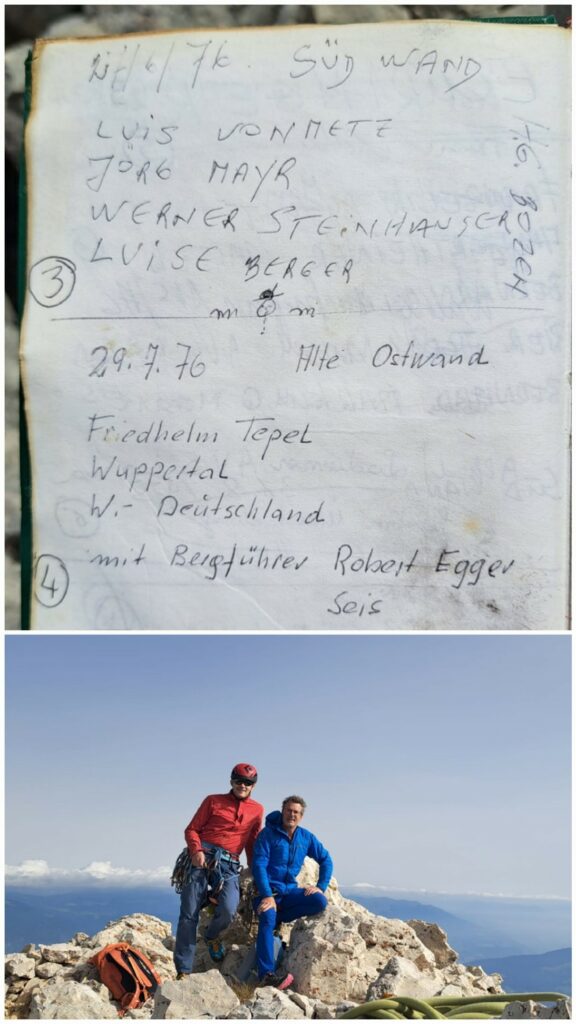 /6/76. SÜD WAND
LUIS VONMETZ
JÖRG MAYR
WERNER STEINHAUSER
LUISE BERGER
H.G. BOZEN
3
29.7.76 Alte Ostwand
Friedhelm Tepel
Wuppertal
W.- Deutschland
mit Bergführer Robert Egger
Seis
4